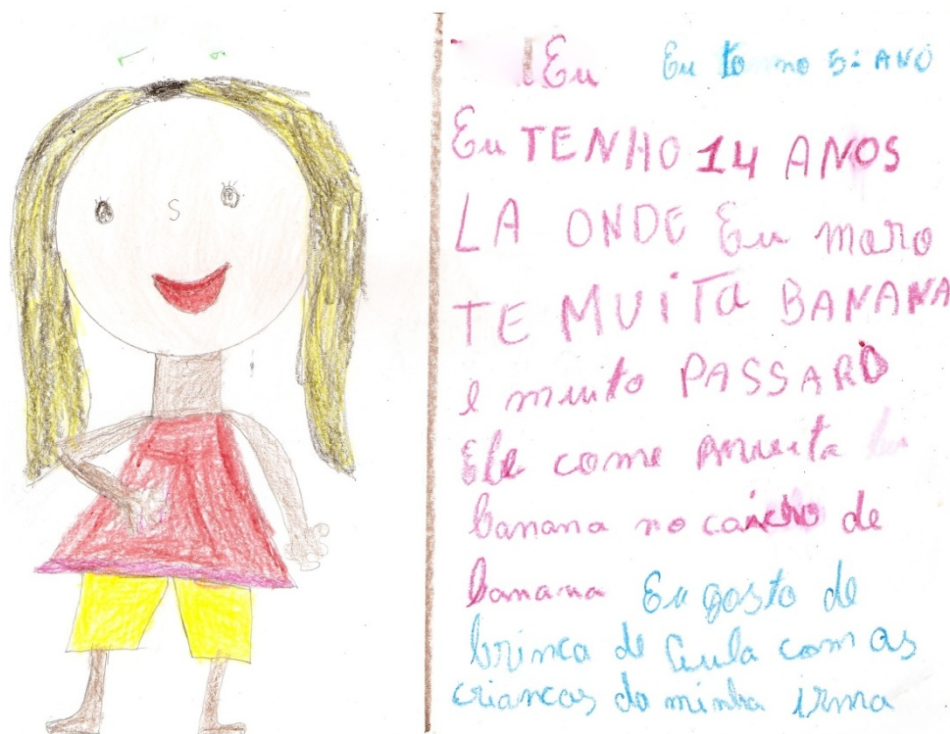 Eu Eu to no 5º ANO
Eu TENHO 14 ANOS
LA ONDE Eu moro
TE MUiTa BANANA
e muito PASSARO
Ele come muita
banana no caicho de
banana Eu gosto de
brinca de Aula com as
criancas da minha irma